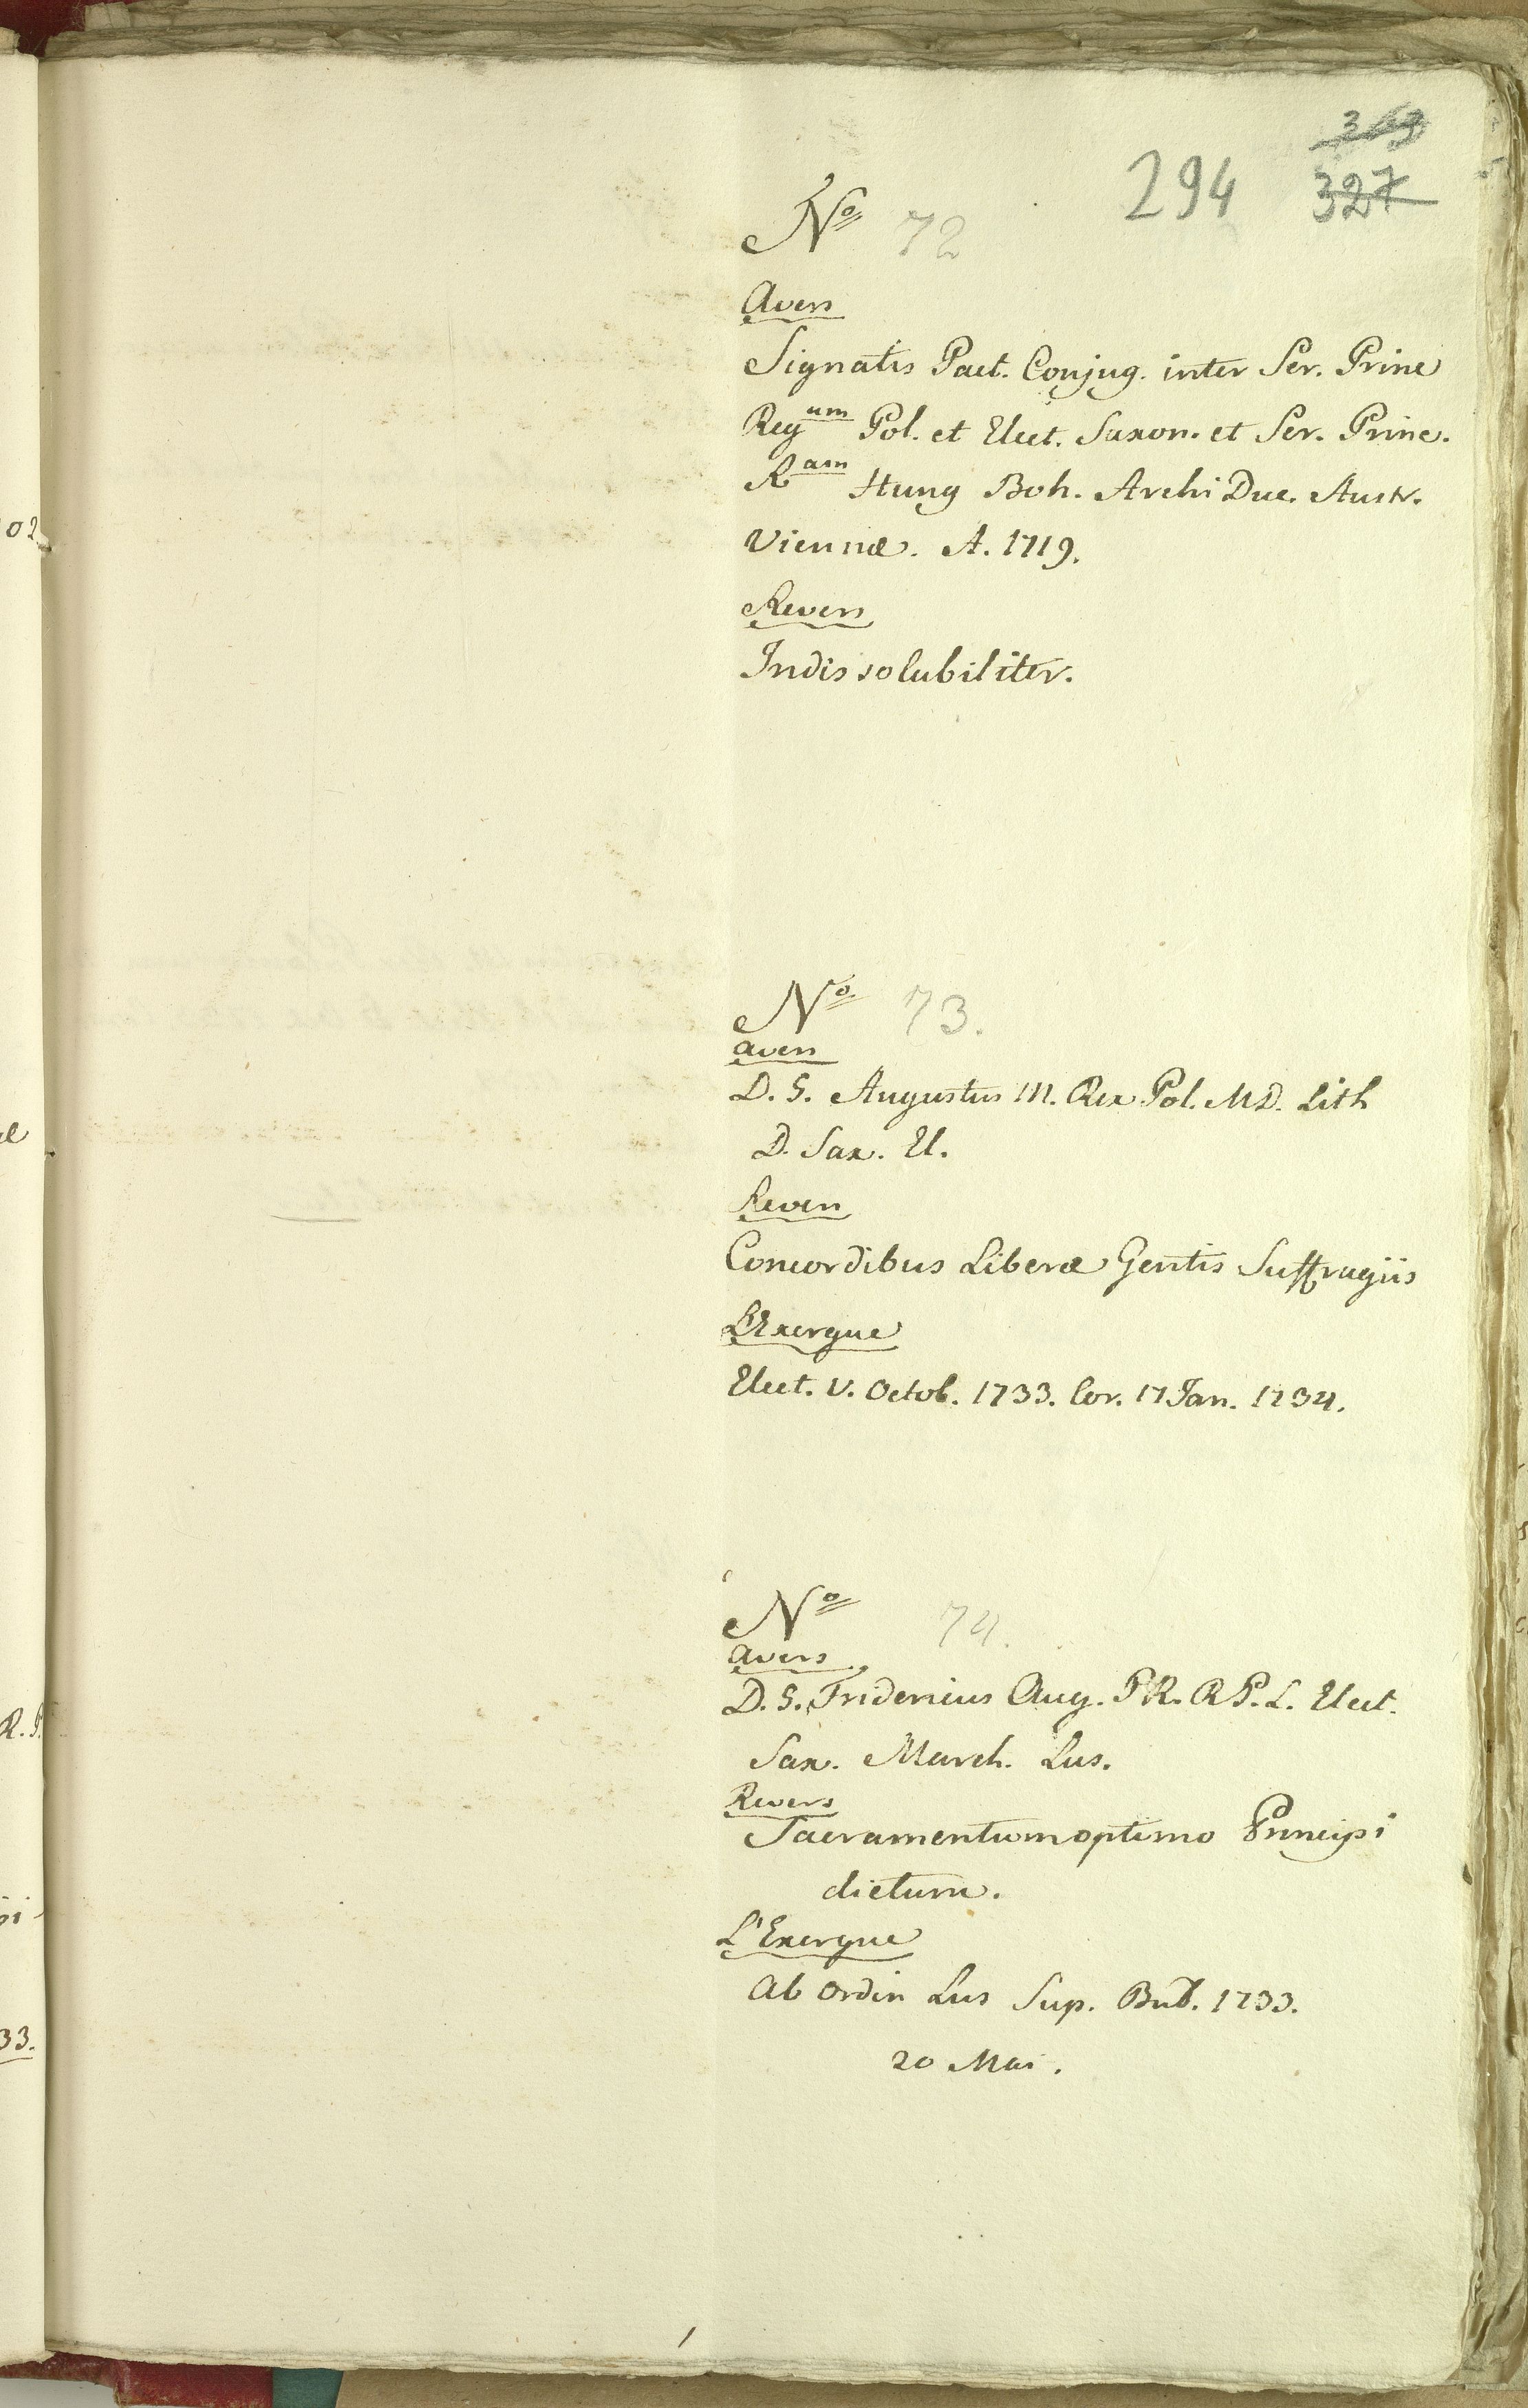 294 327
Nº 72
Avers
Signatis Pact. Conjug. inter Ser. Princ
Reg um Pol. et Elect. Saxon. et Ser. Princ.
R am Hung Boh. Archi Duc. Austr.
Viennæ. A. 1719.
Revers
Indissolubiliter.
Nº 73.
avers
D. G. Augustus III. Rex Pol. M D. Lith
D. Sax. El.
Revers
Concordibus Liberæ Gentis Suffragiis
L'Exergue
Elect. V. Octob. 1733. Cor. 17 Jan. 1734.
Nº 74.
avers
D. G. Fridericus Aug. P R. R P. L. Elect.
Sax. March. Lus.
Revers
Sacramentum optimo Principi
dictum.
L'Exergue
Ab Ordin Lus Sup. Bud. 1733.
20 Mai.
02
æ
R. P.
pi
33.